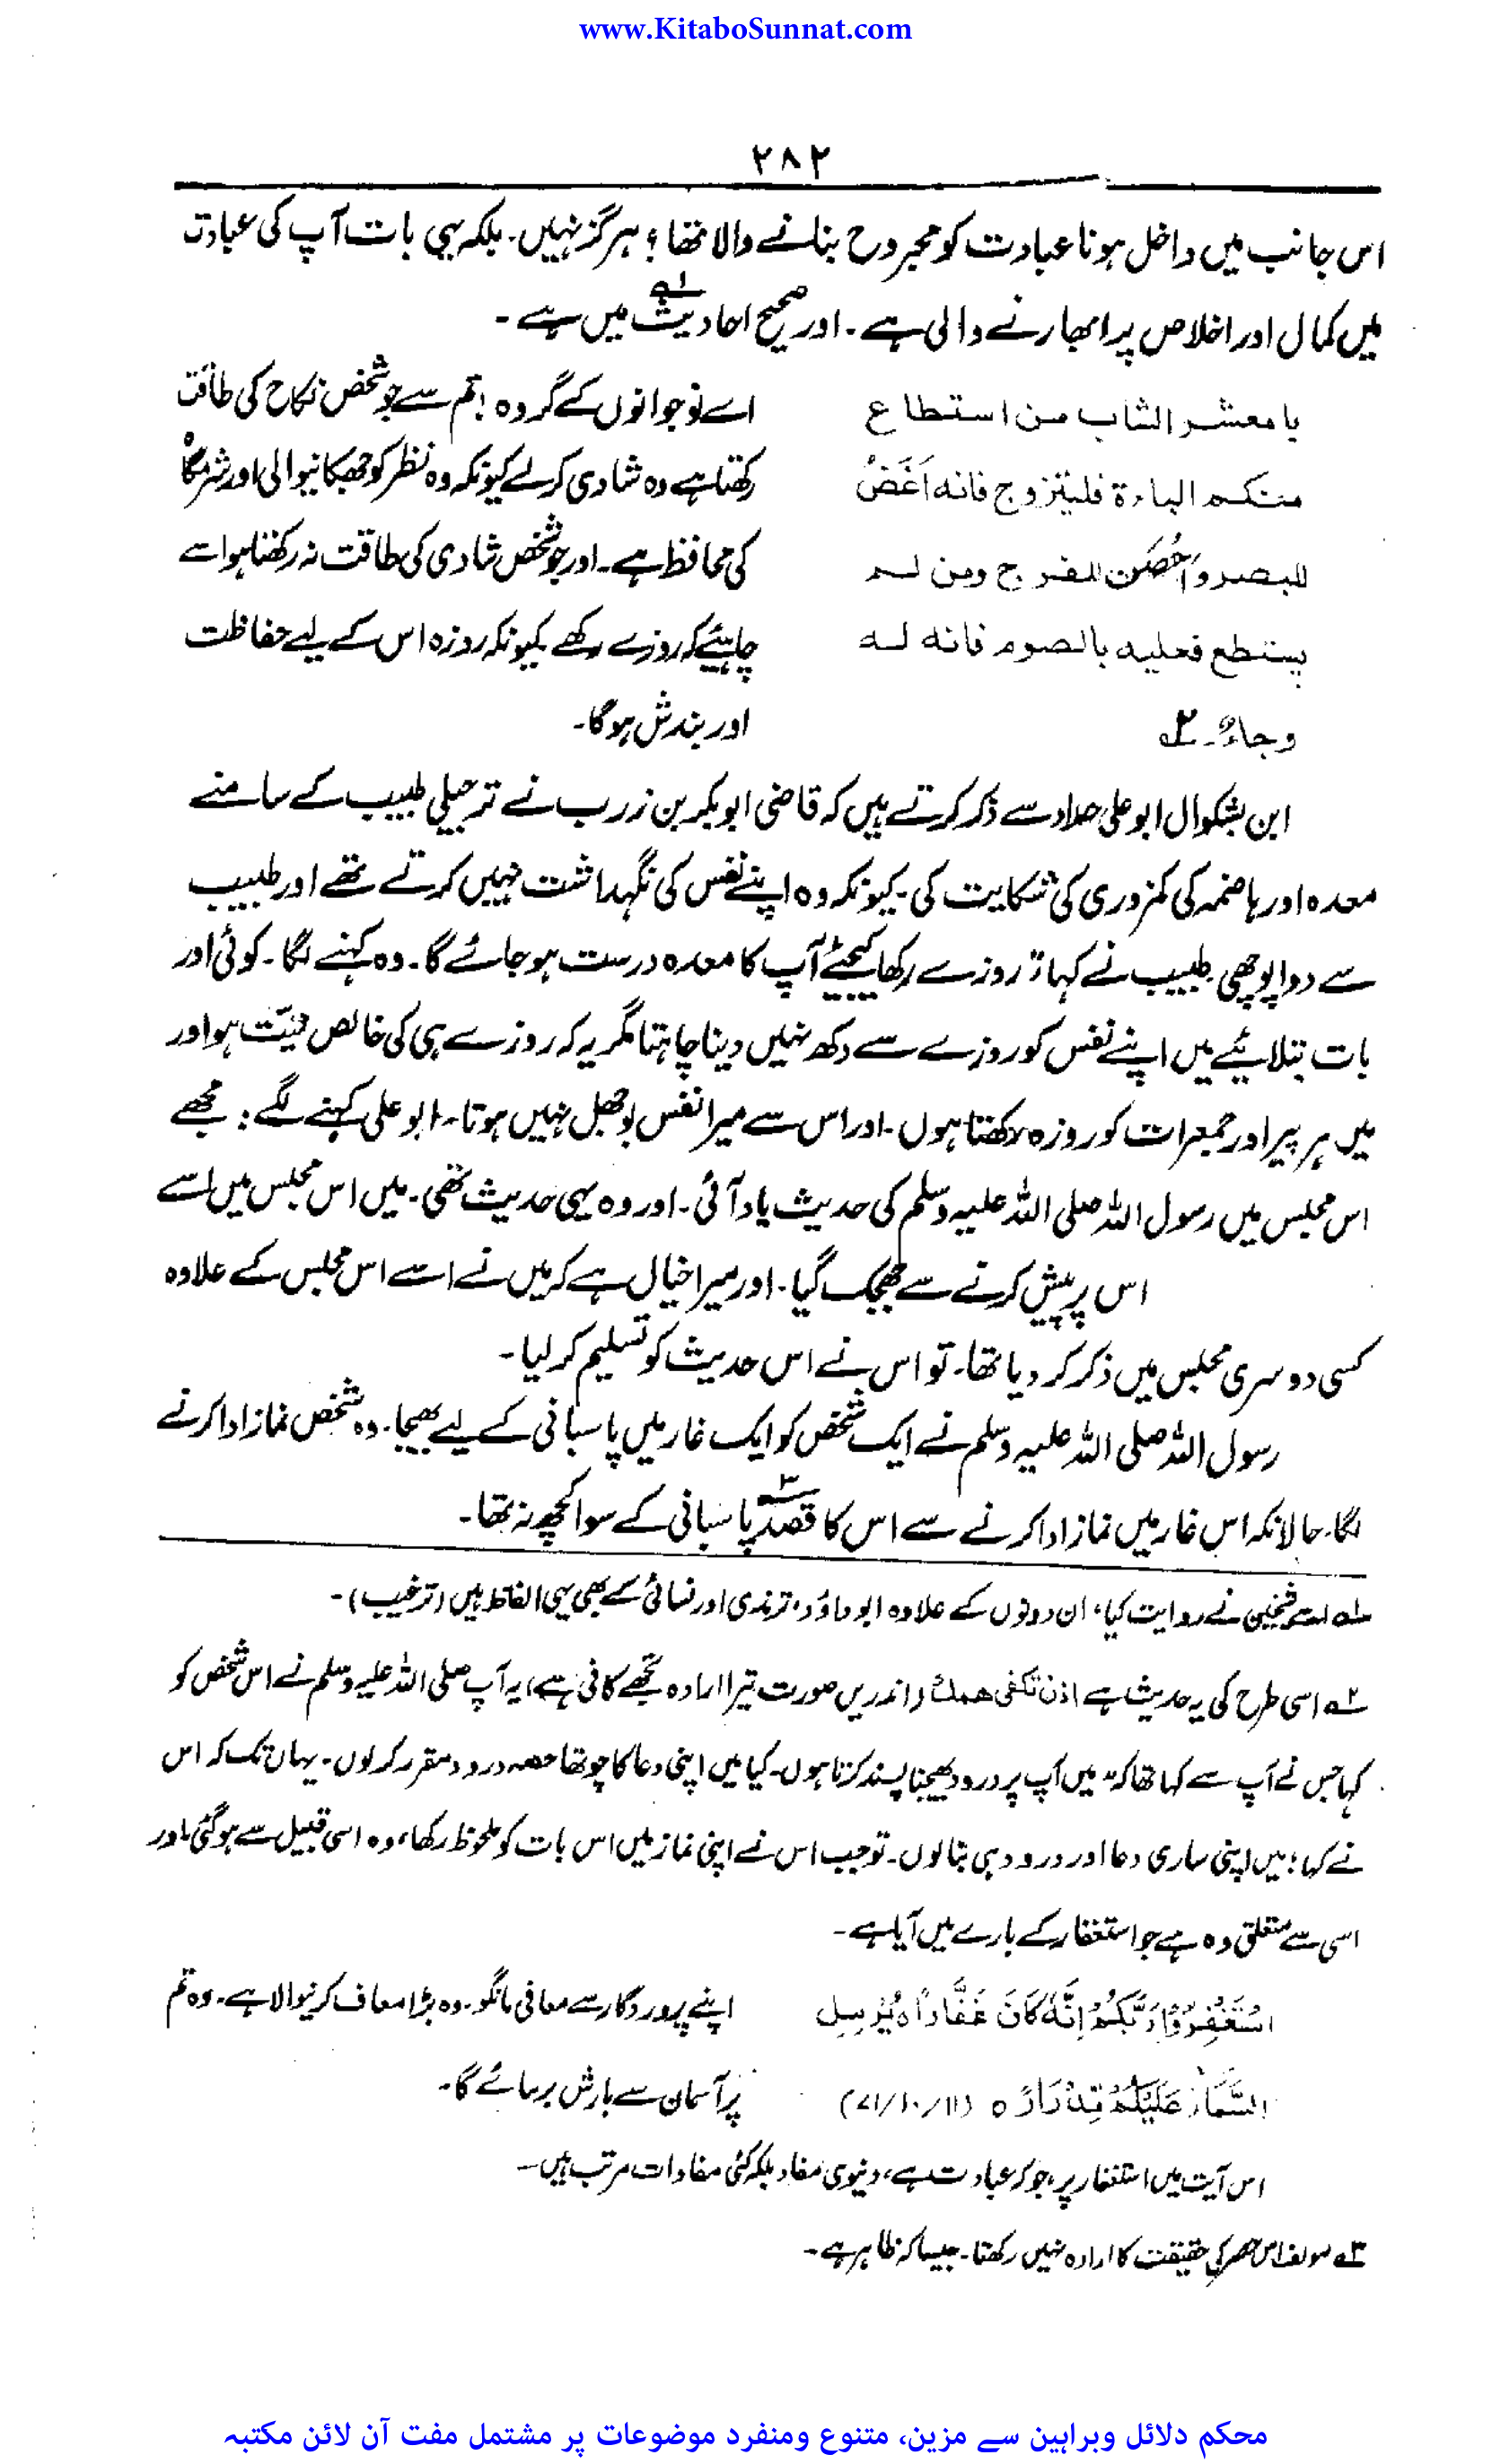 www.KitaboSunnat.com
۲۸۲
اس جانب میں داخل ہونا عبادت کو مجروح بنانے والا تھا؟ ہرگز نہیں۔ بلکہ یہی بات آپ کی عبادت
میں کمال اور اخلاص پر ابھارنے والی ہے۔ اور صحیح احادیث۱؎ میں ہے۔
یا معشر الشاب من استطاع
اے نوجوانوں کے گروہ! تم سے جو شخص نکاح کی طاقت
منکم الباءة فلیتزوج فانه اَغَضُّ
رکھتا ہے وہ شادی کرلے کیونکہ وہ نظر کو جھکانیوالی اور شرمگاہ
للبصر واَحْصَن للفرج ومن لم
کی محافظ ہے۔ اور جو شخص شادی کی طاقت نہ رکھتا ہو اسے
یستطع فعلیه بالصوم فانه له
چاہیئے کہ روزے رکھے کیونکہ روزہ اس کے لیے حفاظت
وجاءٌ۔ ۲؎
اور بندش ہوگا۔
ابن بشکوال ابو علی حلاد سے ذکر کرتے ہیں کہ قاضی ابوبکر بن زرب نے ترجیلی طبیب کے سامنے
معدہ اور ہاضمہ کی کمزوری کی شکایت کی۔ کیونکہ وہ اپنے نفس کی نگہداشت نہیں کرتے تھے اور طبیب
سے دوا پوچھی۔ طبیب نے کہا: "روزے رکھا کیجئے آپ کا معدہ درست ہو جائے گا۔ وہ کہنے لگا۔ کوئی اور
بات بتلائیے میں اپنے نفس کو روزے سے دکھ نہیں دینا چاہتا مگر یہ کہ روزے ہی کی خالص نیّت ہو اور
میں ہر پیر اور جمعرات کو روزہ رکھتا ہوں۔ اور اس سے میرا نفس بوجھل نہیں ہوتا۔ ابو علی کہنے لگے: مجھے
اس مجلس میں رسول اللہ صلی اللہ علیہ وسلم کی حدیث یاد آئی۔ اور وہ یہی حدیث تھی۔ میں اس مجلس میں اسے
اس پر پیش کرنے سے جھجک گیا۔ اور میرا خیال ہے کہ میں نے اسے اس مجلس کے علاوہ
کسی دوسری مجلس میں ذکر کر دیا تھا۔ تو اس نے اس حدیث کو تسلیم کر لیا۔
رسول اللہ صلی اللہ علیہ وسلم نے ایک شخص کو ایک غار میں پاسبانی کے لیے بھیجا۔ وہ شخص نماز ادا کرنے
لگا۔ حالانکہ اس غار میں نماز ادا کرنے سے اس کا قصد۳؎ پاسبانی کے سوا کچھ نہ تھا۔
۱؎ اسے شیخین نے روایت کیا، ان دونوں کے علاوہ ابو داؤد، ترمذی اور نسائی کے بھی یہی الفاظ ہیں (ترغیب)۔
۲؎ اسی طرح کی یہ حدیث ہے اذن تکفی همك (اندریں صورت تیرا ارادہ تجھے کافی ہے) یہ آپ صلی اللہ علیہ وسلم نے اس شخص کو
کہا جس نے آپ سے کہا تھا کہ "میں آپ پر درود بھیجنا پسند کرتا ہوں۔ کیا میں اپنی دعا کا چوتھا حصہ درود مقرر کرلوں۔ یہاں تک کہ اس
نے کہا؛ میں اپنی ساری دعا اور درود ہی بنا لوں۔ تو جب اس نے اپنی نماز میں اس بات کو ملحوظ رکھا، وہ اسی قبیل سے ہوگئی اور
اسی سے متعلق وہ ہے جو استغفار کے بارے میں آیا ہے۔
اسْتَغْفِرُوْا رَبَّكُمْ اِنَّهٗ كَانَ غَفَّارًا ہ یُرْسِلِ
اپنے پروردگار سے معافی مانگو۔ وہ بڑا معاف کرنیوالا ہے۔ وہ تم
السَّمَآءَ عَلَيْكُمْ مِّدْرَارًا ہ (۷۱/۱۰/۱۱)
پر آسمان سے بارش برسائے گا۔
اس آیت میں استغفار پر، جو کہ عبادت ہے، دنیوی مفاد بلکہ کئی مفادات مرتب ہیں۔
۳؎ مولف اس حصر کی حقیقت کا ارادہ نہیں رکھتا۔ جیسا کہ ظاہر ہے۔
محکم دلائل وبراہین سے مزین، متنوع ومنفرد موضوعات پر مشتمل مفت آن لائن مکتبہ